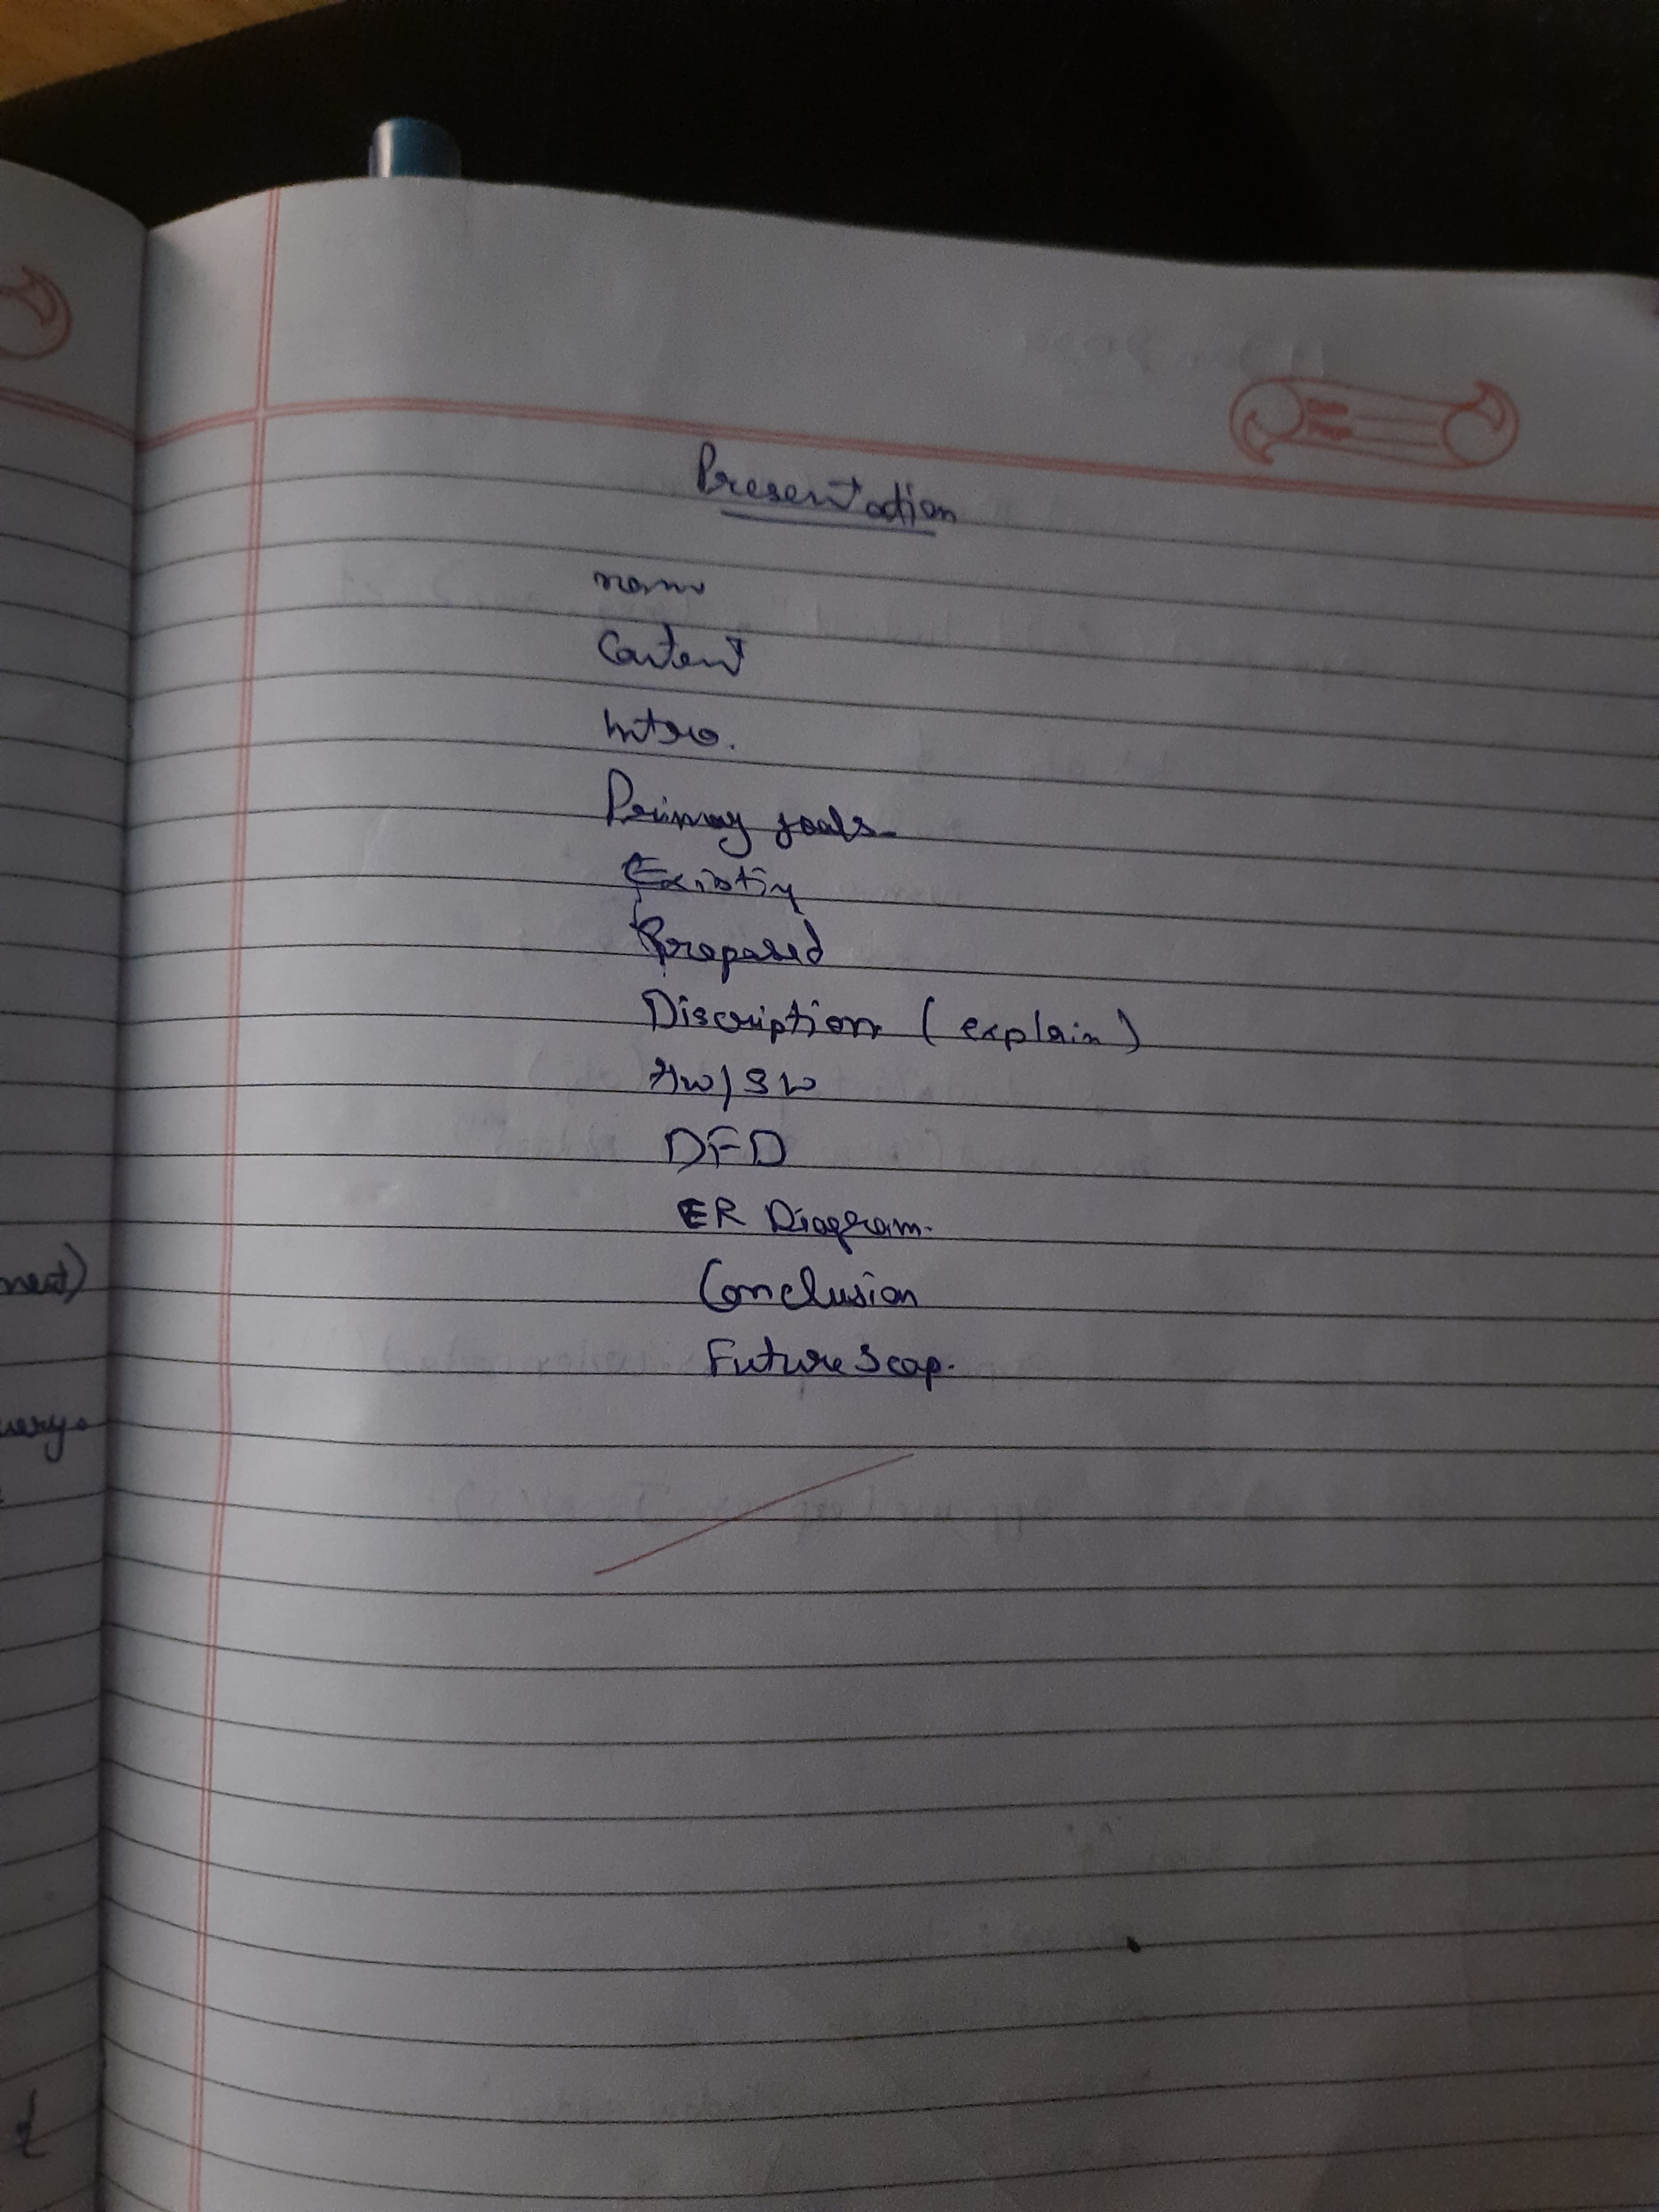 Date
Page
Presentation
name
Content
Intro.
Primay goals
Existing
Proposed
Discription (explain)
Hw/Sw
DFD
ER Diagram.
Conclusion
Future Scop.